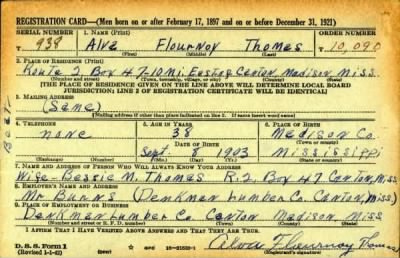 REGISTRATION CARD—(Men born on or after February 17, 1897 and on or before December 31, 1921)
SERIAL NUMBER 1. NAME (Print) ORDER NUMBER
938 Alva Flournoy Thomas 10,090
(First) (Middle) (Last)
2. PLACE OF RESIDENCE (Print)
Route 2 Box 47-10 mi. East of Canton, Madison, Miss.
[THE PLACE OF RESIDENCE GIVEN ON THE LINE ABOVE WILL DETERMINE LOCAL BOARD
JURISDICTION; LINE 2 OF REGISTRATION CERTIFICATE WILL BE IDENTICAL]
3. MAILING ADDRESS
(Same)
(Mailing address if other than place indicated on line 2. If same insert word same)
4. TELEPHONE 5. AGE IN YEARS 6. PLACE OF BIRTH
none 38 Madison Co.
DATE OF BIRTH (Town or county)
Sept. 1903 Mississippi
(Exchange) (Number) (Mo.) (Day) (Yr.) (State or country)
7. NAME AND ADDRESS OF PERSON WHO WILL ALWAYS KNOW YOUR ADDRESS
Wife-Bessie M. Thomas R.2 Box 47 Canton, Miss.
8. EMPLOYER'S NAME AND ADDRESS
Mr Burns (Denkman Lumber Co. Canton, Miss.)
9. PLACE OF EMPLOYMENT OR BUSINESS
Denkman Lumber Co. Canton Madison, Miss
(Number and street or R. F. D. number) (Town) (County) (State)
I AFFIRM THAT I HAVE VERIFIED ABOVE ANSWERS AND THAT THEY ARE TRUE.
D. S. S. Form 1
(Revised 1-1-42) (over) 16-21630-1 Alva Flournoy Thomas
(Registrant's signature)